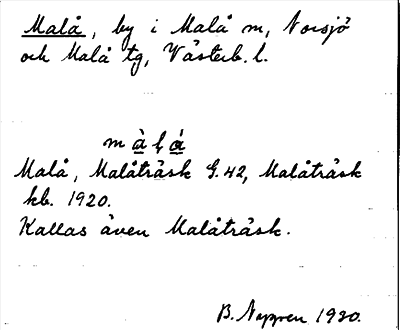 Malå, by i Malå m, Norsjö
och Malå tg, Västerb. l.
Malå, Malåträsk G. 42, Malåträsk
kb. 1920.
Kallas även Malåträsk.
B. 1920.